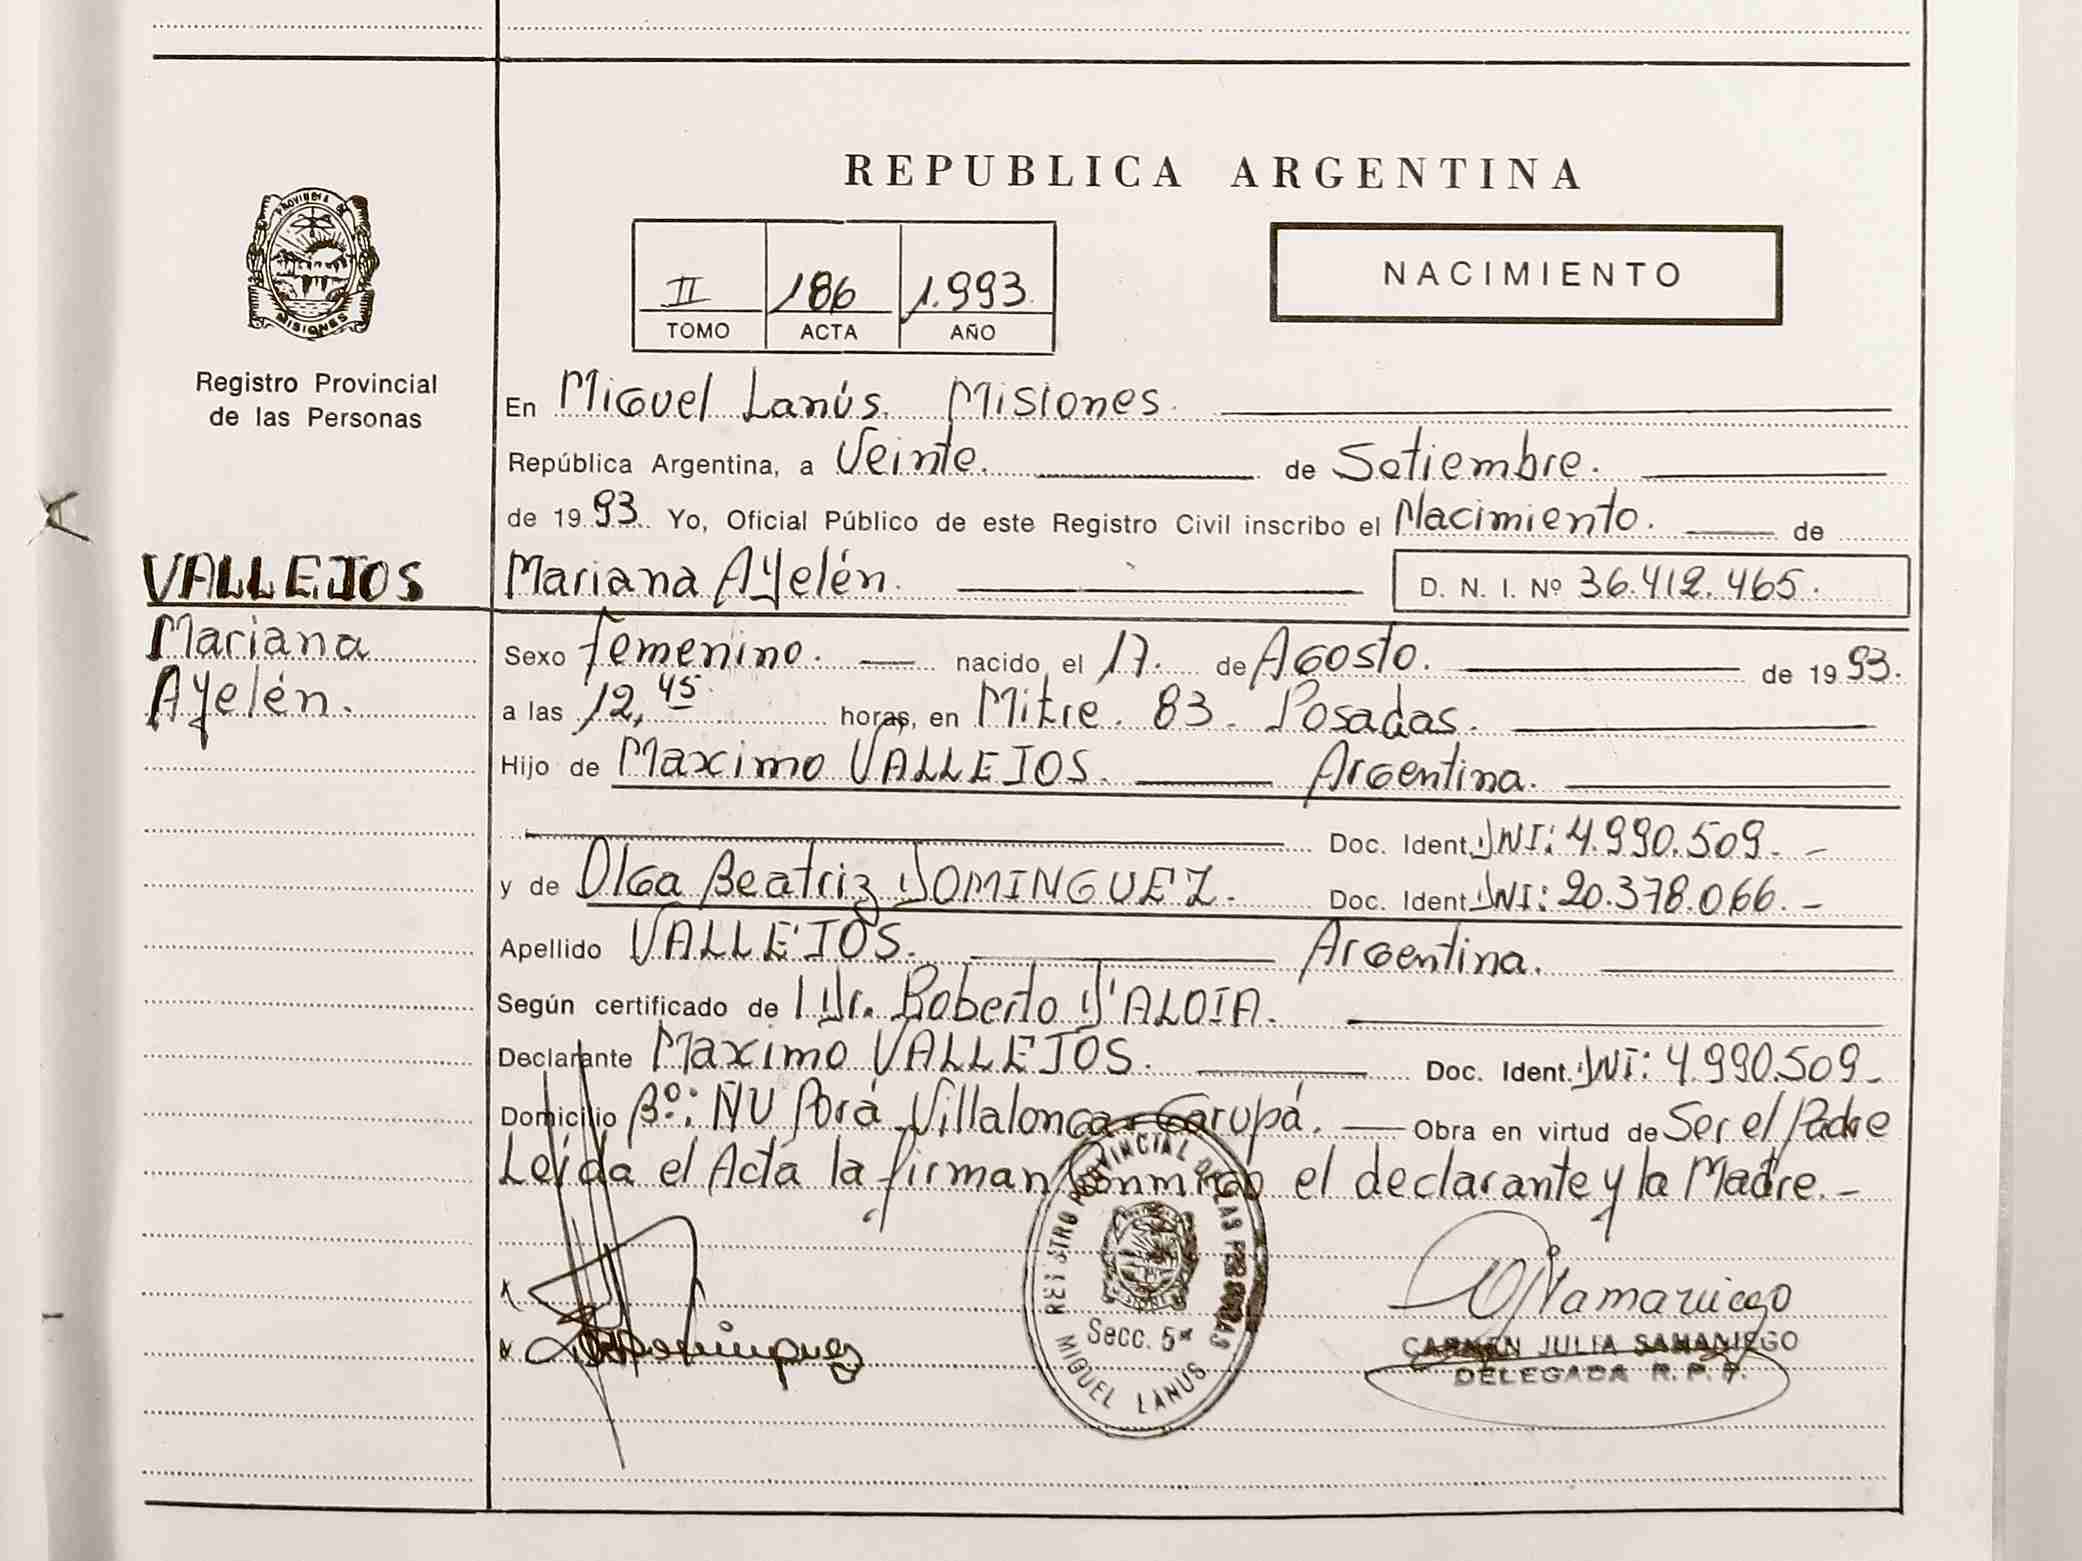 REPUBLICA ARGENTINA
PROVINCIA DE
MISIONES
Registro Provincial
de las Personas
II 186 1.993
TOMO ACTA AÑO
NACIMIENTO
En Miguel Lanús. Misiones.
República Argentina, a Veinte. de Setiembre.
de 1993. Yo, Oficial Público de este Registro Civil inscribo el Nacimiento. de
VALLEJOS
Mariana
Ayelén.
Mariana Ayelén. D. N. I. Nº 36.412.465.
Sexo femenino. nacido el 17. de Agosto. de 1993.
a las 12,45 horas, en Mitre. 83. Posadas.
Hijo de Maximo VALLEJOS. Argentina.
Doc. Ident. DNI: 4.990.509.-
y de Olga Beatriz DOMINGUEZ. Doc. Ident. DNI: 20.378.066.-
Apellido VALLEJOS. Argentina.
Según certificado de Dr. Roberto D'ALOIA.
Declarante Maximo VALLEJOS. Doc. Ident. DNI: 4.990.509-
Domicilio Bº: ÑU Porá Villalonga-Garupá. Obra en virtud de Ser el Padre
Leída el Acta la firman conmigo el declarante y la Madre.-
REGISTRO PROVINCIAL DE LAS PERSONAS
Secc. 5ª
MIGUEL LANUS
CARMEN JULIA SAMANIEGO
DELEGADA R. P. P.